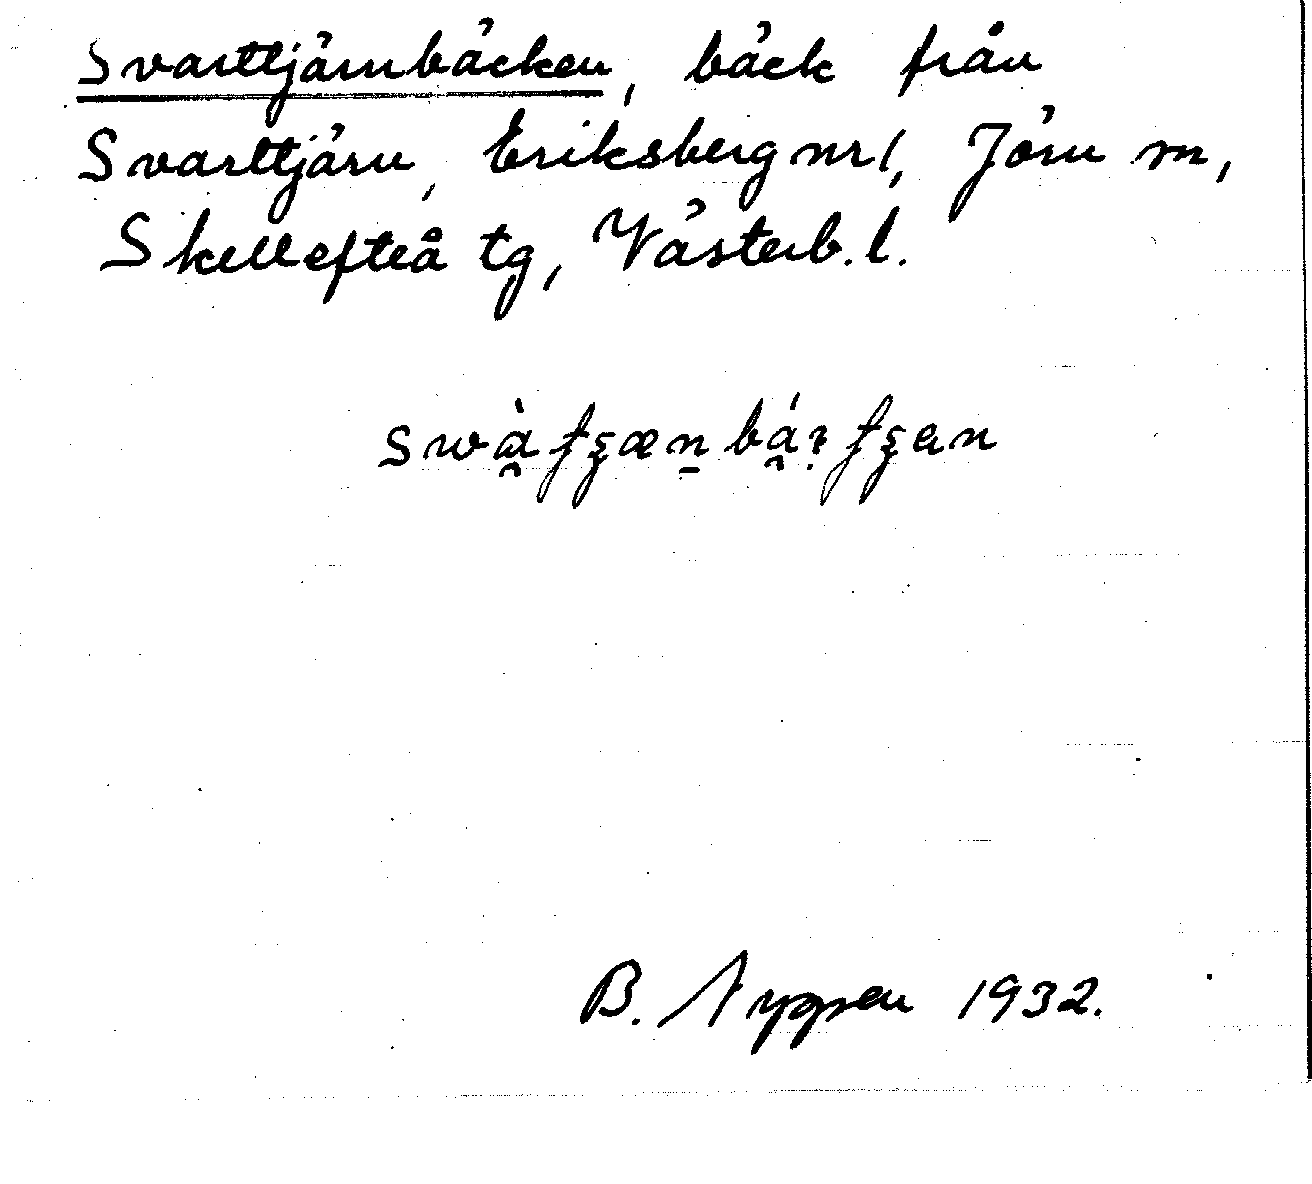 Svarttjärnbäcken, bäck från
Svarttjärn, Eriksberg nr 1, Jörn m,
Skellefteå tg, Västerb. l.
B. 1932.